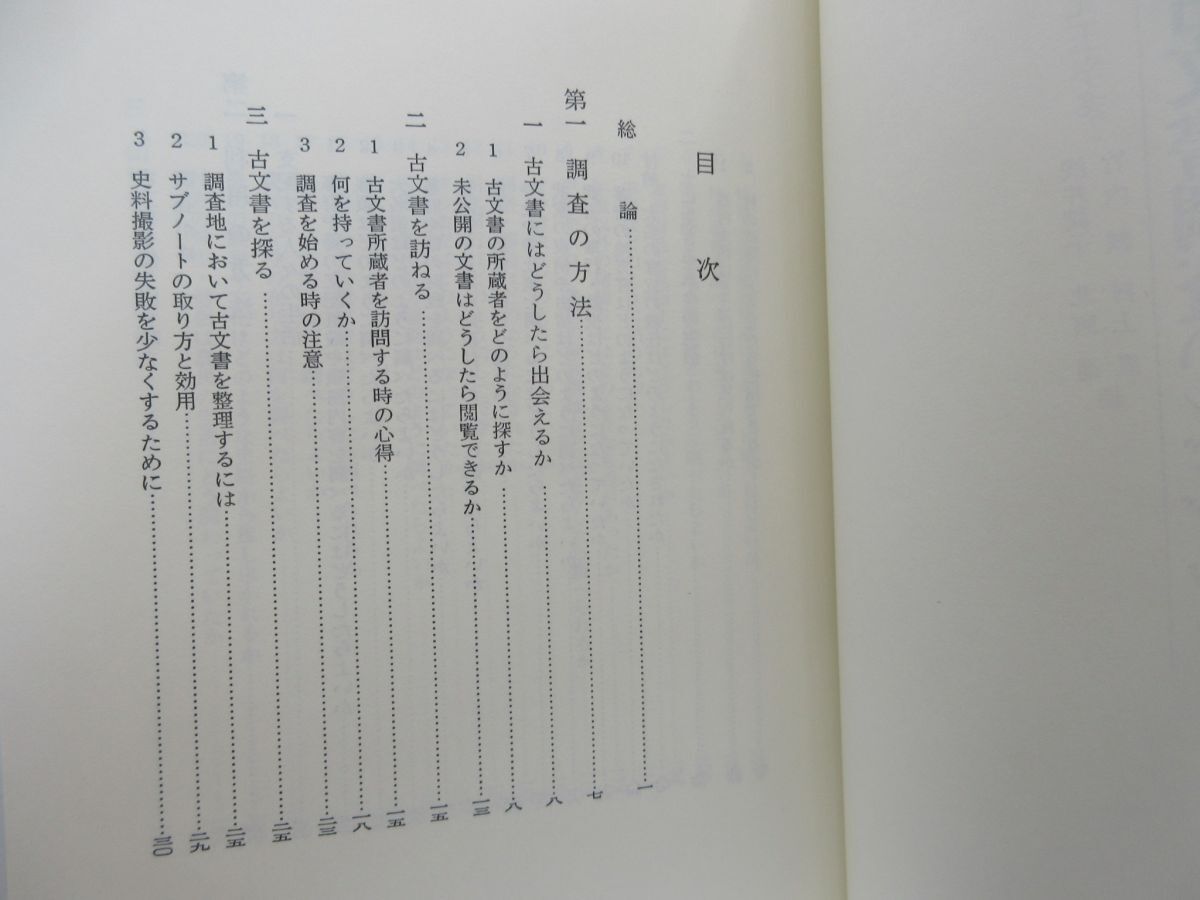 目次
総論 一
第一 調査の方法 七
一 古文書にはどうしたら出会えるか 八
1 古文書の所蔵者をどのように探すか 八
2 未公開の文書はどうしたら閲覧できるか 一三
二 古文書を訪ねる 一五
1 古文書所蔵者を訪問する時の心得 一五
2 何を持っていくか 一八
3 調査を始める時の注意 二三
三 古文書を探る 二五
1 調査地において古文書を整理するには 二五
2 サブノートの取り方と効用 二九
3 史料撮影の失敗を少なくするために 三〇